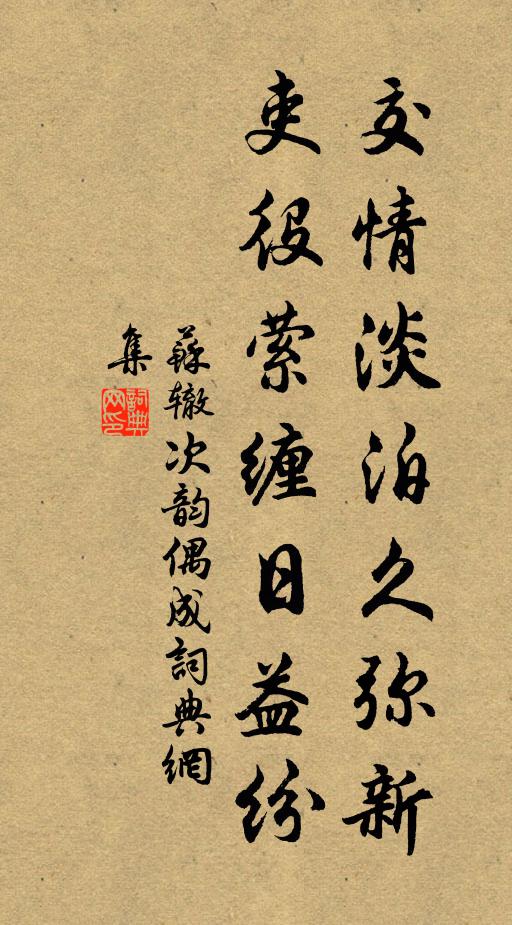 交情淡泊久弥新
吏役萦缠日益纷
蘇辙次韵偶成詞典網
集
詞典
网印